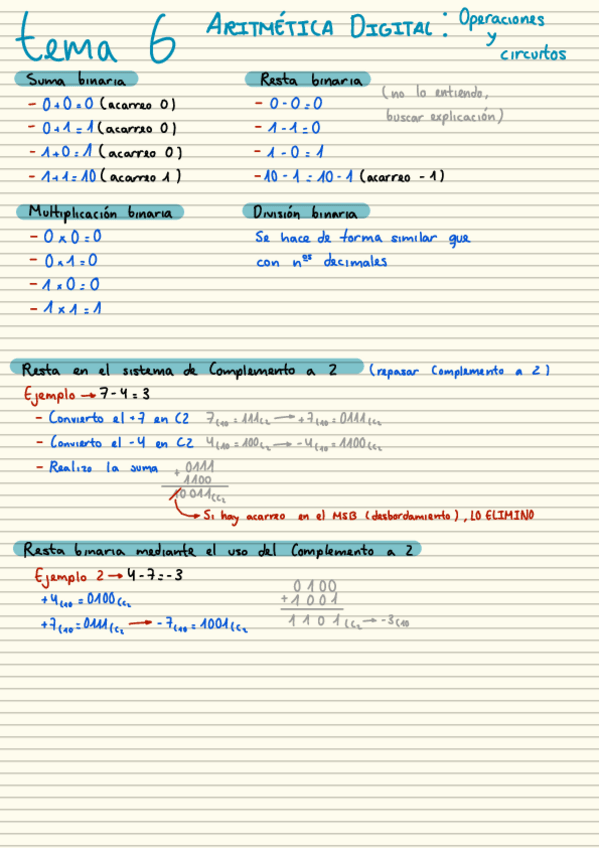 tema 6
ARITMÉTICA DIGITAL: Operaciones
y
circuitos
Suma binaria
- 0+0=0 (acarreo 0)
- 0+1=1 (acarreo 0)
- 1+0=1 (acarreo 0)
- 1+1=10 (acarreo 1)
Resta binaria
(no lo entiendo,
buscar explicación)
- 0-0=0
- 1-1=0
- 1-0=1
-10-1=10-1 (acarreo -1)
Multiplicación binaria
- 0x0=0
- 0x1=0
- 1x0=0
- 1x1=1
División binaria
Se hace de forma similar que
con nºs decimales
Resta en el sistema de Complemento a 2 (repasar Complemento a 2)
Ejemplo → 7-4=3
- Convierto el +7 en C2 7(10=111(C2 → +7(10=0111(C2
- Convierto el -4 en C2 4(10=100(C2 → -4(10=1100(C2
- Realizo la suma
0111
+ 1100
10011(C2
→ Si hay acarreo en el MSB (desbordamiento), LO ELIMINO
Resta binaria mediante el uso del Complemento a 2
Ejemplo 2 → 4-7=-3
+4(10=0100(C2
+7(10=0111(C2 → -7(10=1001(C2
0100
+1001
1101(C2 → -3(10